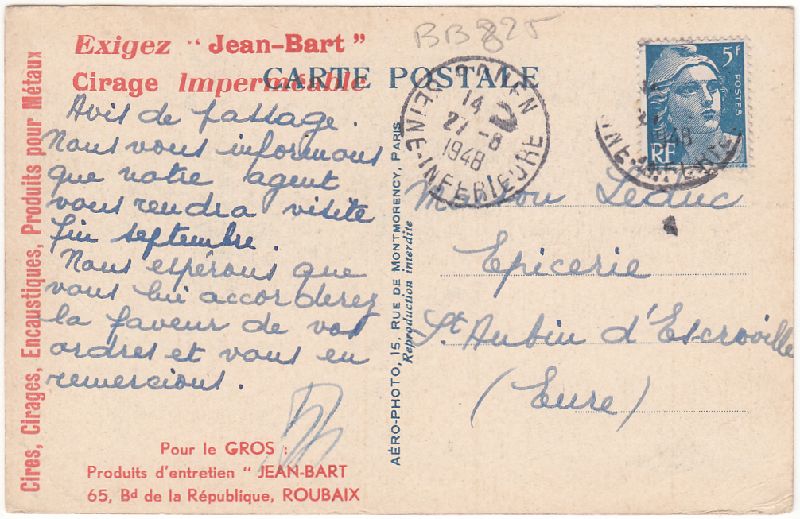 BB825
Exigez "Jean-Bart"
Cirage Imperméable
CARTE POSTALE
Cires, Cirages, Encaustiques, Produits pour Métaux
Avis de passage.
Nous vous informons
que notre agent
vous rendra visite
fin septembre.
Nous espérons que
vous lui accorderez
la faveur de vos
ordres et vous en
remercions.
Pour le GROS :
Produits d'entretien "JEAN-BART
65, Bd de la République, ROUBAIX
AÉRO-PHOTO, 15, RUE DE MONTMORENCY, PARIS
Reproduction interdite
ROUEN
14
27-8
1948
SEINE-INFERIEURE
5F
POSTES
RF
Maison Leduc
Epicerie
St Aubin d'Escroville
(Eure)